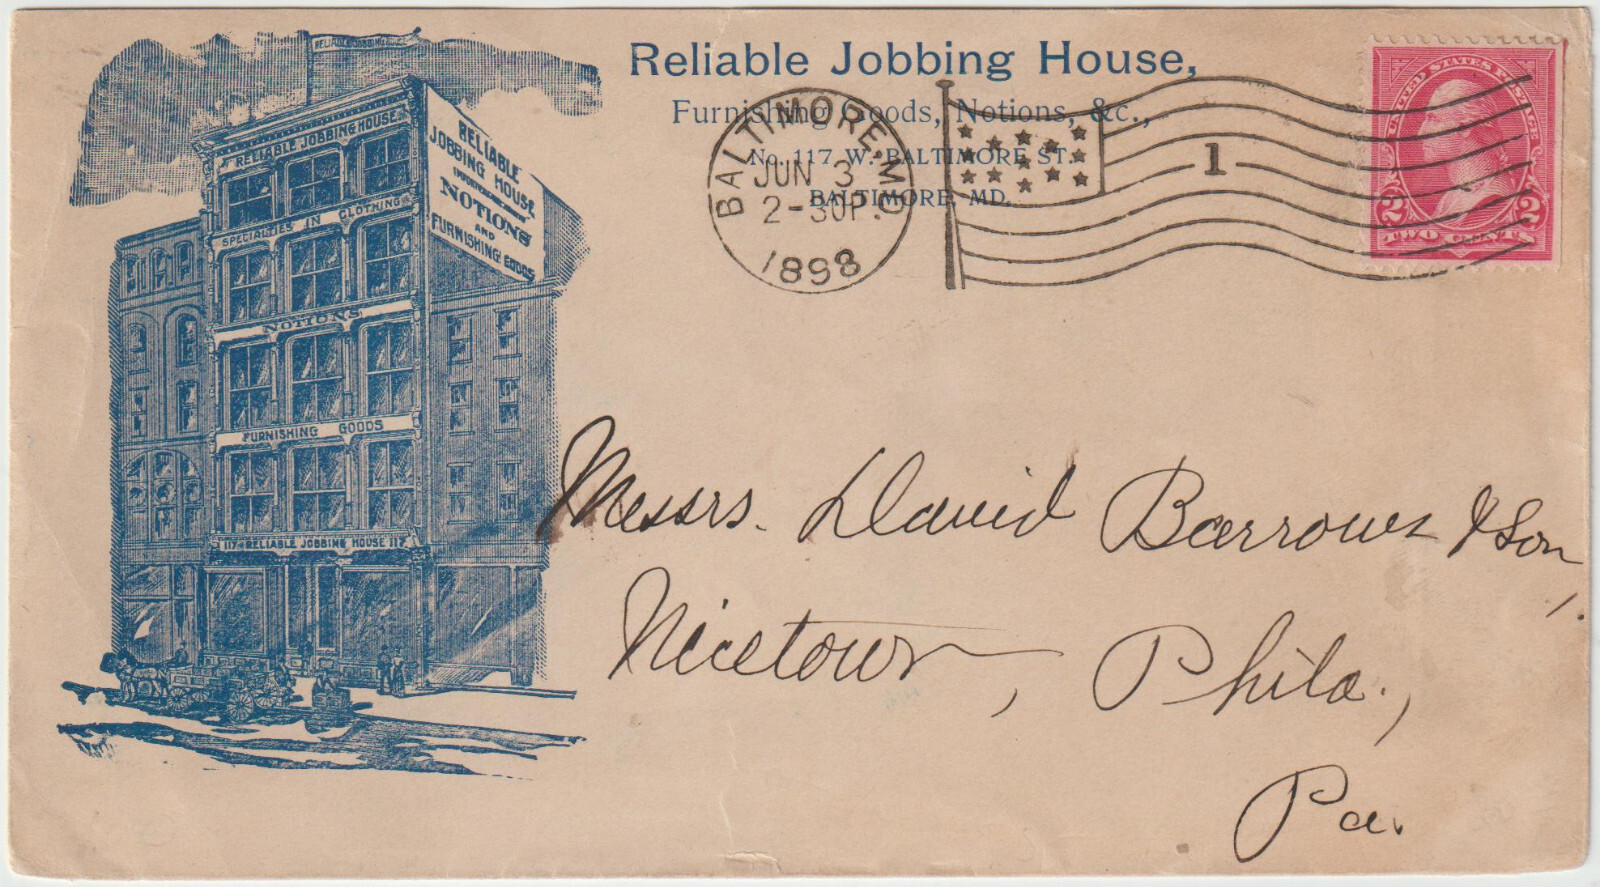 Reliable Jobbing House,
Furnishing Goods, Notions, &c.,
No. 117 W. BALTIMORE ST.
BALTIMORE, MD.
BALTIMORE, MD
JUN 3
2-30P.
1898
1
UNITED STATES POSTAGE
2 2
TWO CENTS
RELIABLE JOBBING
RELIABLE JOBBING HOUSE
SPECIALTIES IN CLOTHING
NOTIONS
FURNISHING GOODS
117 RELIABLE JOBBING HOUSE 117
RELIABLE
JOBBING HOUSE
NOTIONS
AND
FURNISHING GOODS
Messrs. David Barrows & Son,
Nicetown, Phila.,
Pa.